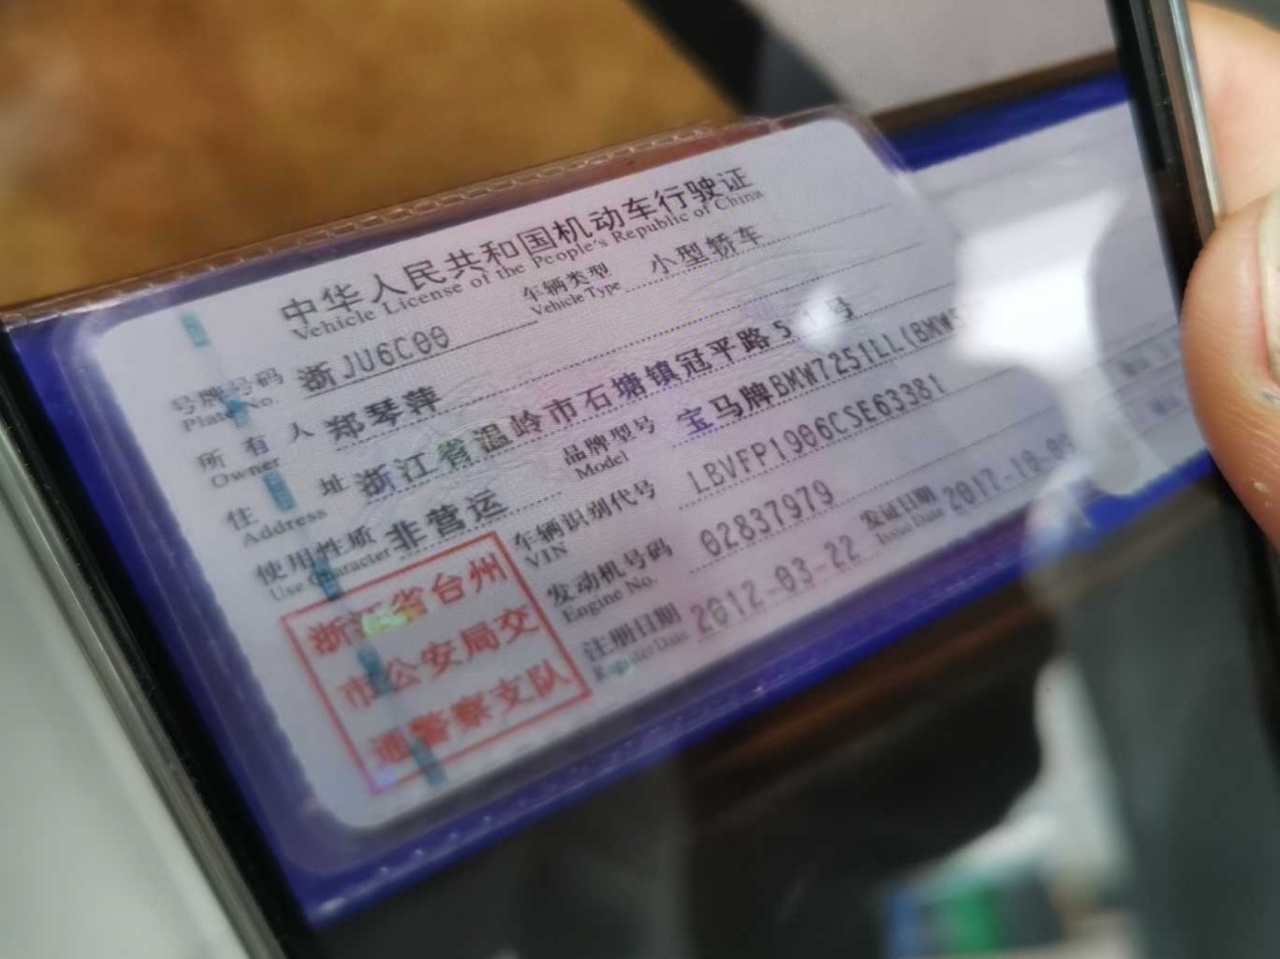 中华人民共和国机动车行驶证
Vehicle License of the People's Republic of China
号牌号码 浙JU6C00 车辆类型 小型轿车
Plate No. Vehicle Type
所有人 郑琴萍
Owner
住址 浙江省温岭市石塘镇冠平路5 号
Address
使用性质 非营运 品牌型号 宝马牌BMW7251LL(BMW5
Use Character Model
车辆识别代号 LBVFP1906CSE63381
VIN
发动机号码 02837979
Engine No.
注册日期 2012-03-22 发证日期 2017-10-09
Register Date Issue Date
浙江省台州
市公安局交
通警察支队